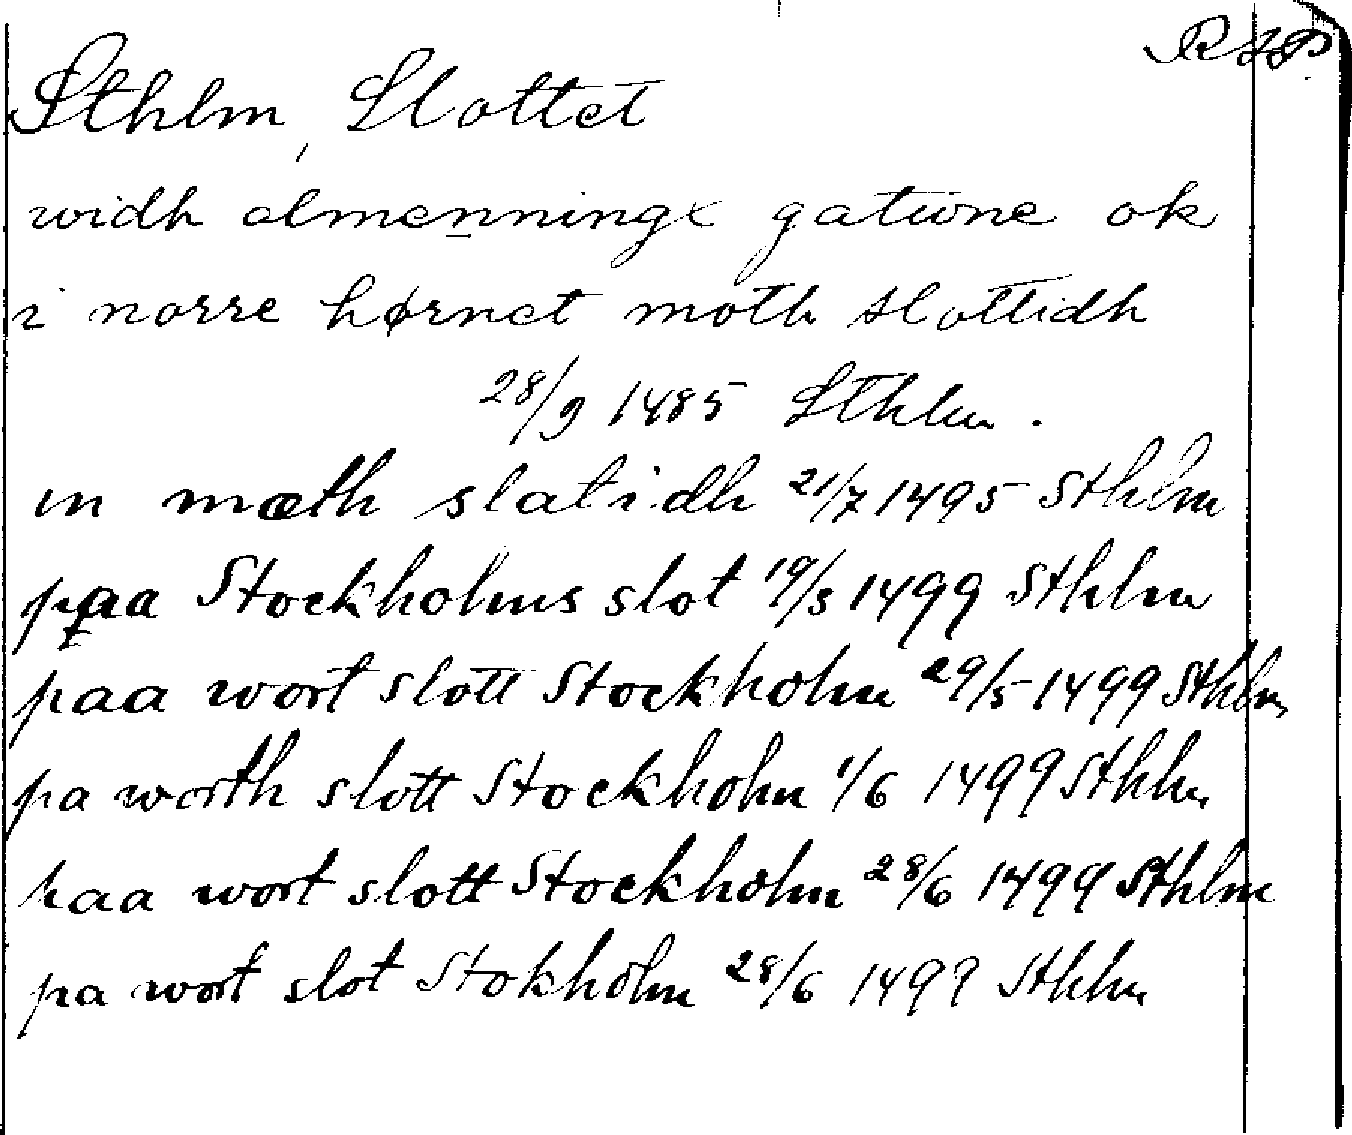 RAP.
Sthlm, Slottet
widh almenningx gatwne ok
i norre hørnet moth slottidh
28/9 1485 Sthlm.
in mæth slatidh 21/7 1495 Sthlm
paa Stockholms slot 19/5 1499 Sthlm
paa wort slott Stockholm 29/5 1499 Sthlm
pa worth slott Stockholm 1/6 1499 Sthlm
paa wort slott Stockholm 28/6 1499 Sthlm
pa wort slot Stokholm 28/6 1499 Sthlm